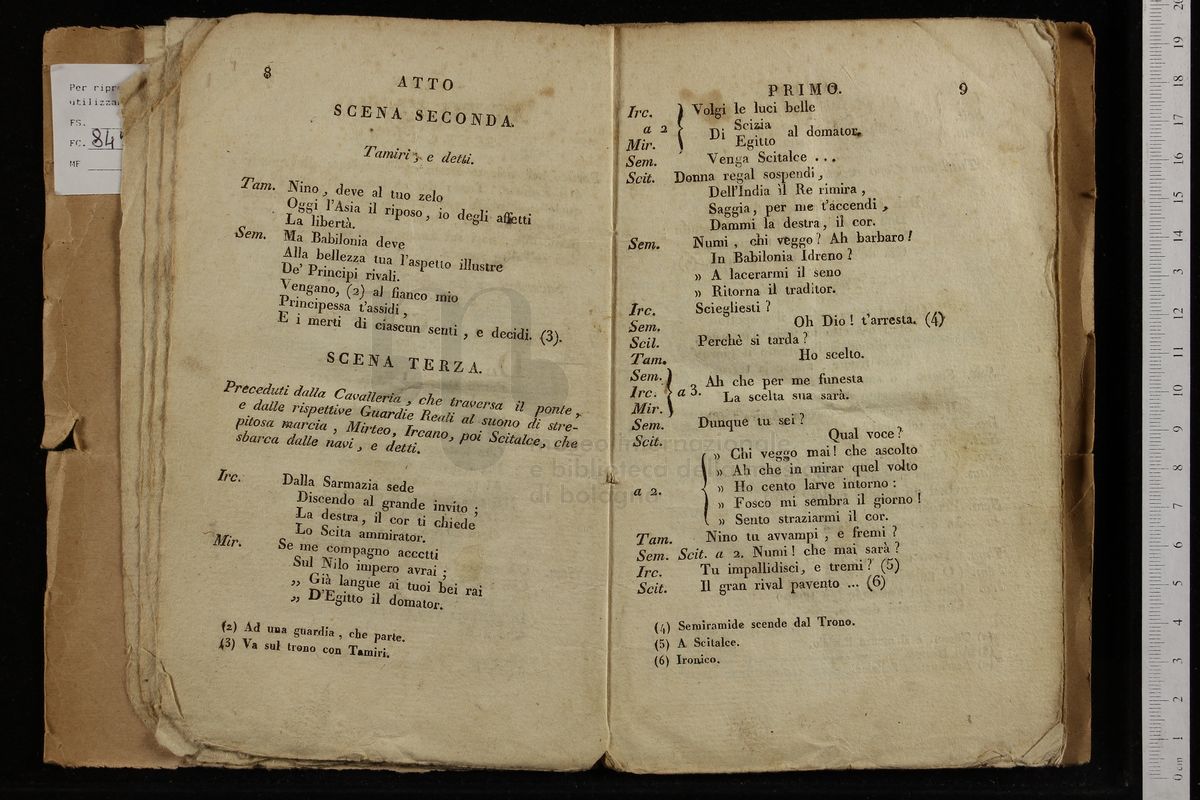 Per ripr
utilizza
FS.
FC. 84
MF
8
ATTO
SCENA SECONDA.
Tamiri, e detti.
Tam. Nino, deve al tuo zelo
Oggi l'Asia il riposo, io degli affetti
La libertà.
Sem. Ma Babilonia deve
Alla bellezza tua l'aspetto illustre
De' Principi rivali.
Vengano, (2) al fianco mio
Principessa t'assidi,
E i merti di ciascun senti, e decidi. (3).
SCENA TERZA.
Preceduti dalla Cavalleria, che traversa il ponte,
e dalle rispettive Guardie Reali al suono di stre-
pitosa marcia, Mirteo, Ircano, poi Scitalce, che
sbarca dalle navi, e detti.
Irc. Dalla Sarmazia sede
Discendo al grande invito;
La destra, il cor ti chiede
Lo Scita ammirator.
Mir. Se me compagno accetti
Sul Nilo impero avrai;
„ Già langue ai tuoi bei rai
„ D'Egitto il domator.
(2) Ad una guardia, che parte.
(3) Va sul trono con Tamiri.
PRIMO. 9
Irc. Volgi le luci belle
a 2 Di Scizia al domator.
Mir. Egitto
Sem. Venga Scitalce ...
Scit. Donna regal sospendi,
Dell'India il Re rimira,
Saggia, per me t'accendi,
Dammi la destra, il cor.
Sem. Numi, chi veggo? Ah barbaro!
In Babilonia Idreno?
» A lacerarmi il seno
» Ritorna il traditor.
Irc. Sciegliesti?
Sem. Oh Dio! t'arresta. (4)
Scil. Perchè si tarda?
Tam. Ho scelto.
Sem.
Irc. a 3. Ah che per me funesta
Mir. La scelta sua sarà.
Sem. Dunque tu sei?
Scit. Qual voce?
» Chi veggo mai! che ascolto
» Ah che in mirar quel volto
a 2. » Ho cento larve intorno:
» Fosco mi sembra il giorno!
» Sento straziarmi il cor.
Tam. Nino tu avvampi, e fremi?
Sem. Scit. a 2. Numi! che mai sarà?
Irc. Tu impallidisci, e tremi? (5)
Scit. Il gran rival pavento ... (6)
(4) Semiramide scende dal Trono.
(5) A Scitalce.
(6) Ironico.